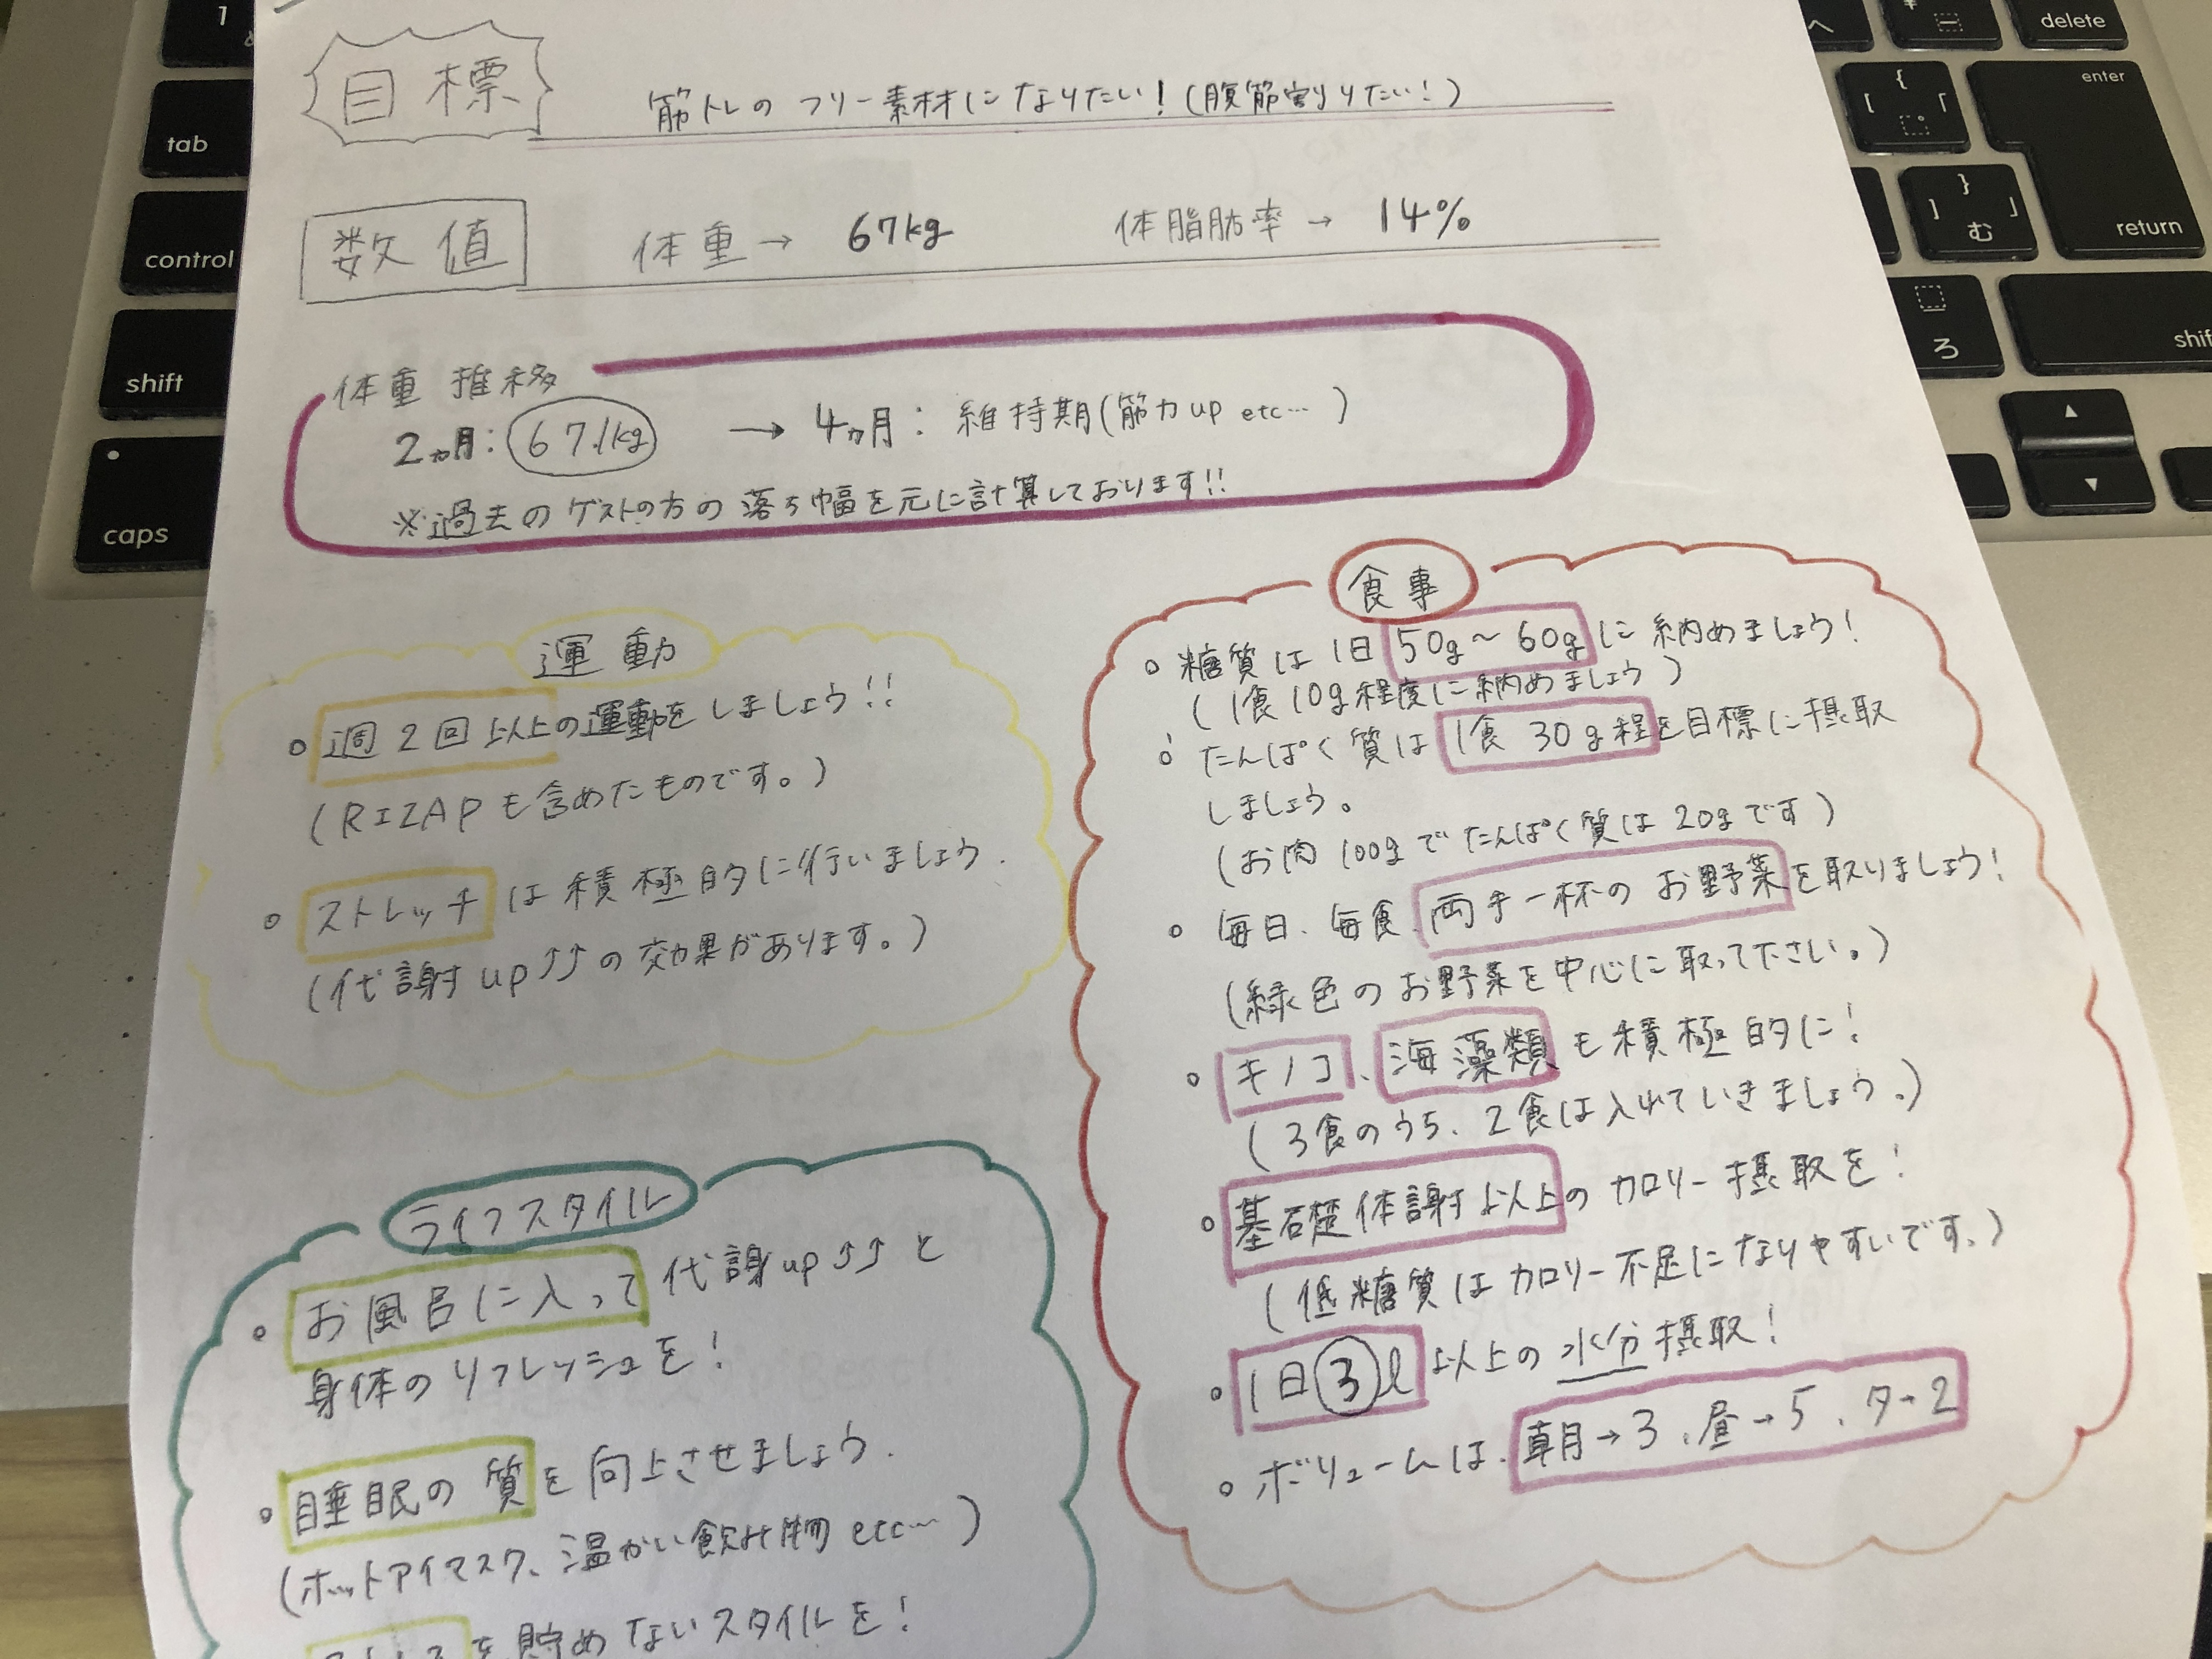 目標
筋トレのフリー素材になりたい!(腹筋割りたい!)
数値
体重→ 67kg 体脂肪率→ 14%
体重推移
2ヵ月:67.1kg → 4ヵ月:維持期(筋力up etc…)
※過去のゲストの方の落ち幅を元に計算しております!!
運動
○週2回以上の運動をしましょう!!
(RIZAPも含めたものです。)
○ストレッチは積極的に行いましょう.
(代謝up↑↑の効果があります。)
ライフスタイル
○お風呂に入って代謝up↑↑と
身体のリフレッシュを!
○睡眠の質を向上させましょう.
(ホットアイマスク、温かい飲み物etc…)
を貯めないスタイルを!
食事
○糖質は1日50g〜60gに納めましょう!
(1食10g程度に納めましょう)
○たんぱく質は1食30g程を目標に摂取
しましょう。
(お肉100gでたんぱく質は20gです)
○毎日、毎食、両手一杯のお野菜を取りましょう!
(緑色のお野菜を中心に取って下さい。)
○キノコ、海藻類も積極的に!
(3食のうち、2食は入れていきましょう。)
○基礎体謝以上のカロリー摂取を!
(低糖質はカロリー不足になりやすいです。)
○1日③ℓ以上の水分摂取!
○ボリュームは、朝→3、昼→5、夕→2
1
tab
control
shift
caps
へ
¥
delete
{
[
「
°
enter
return
}
]
」
む
ろ
shif
▲
▼